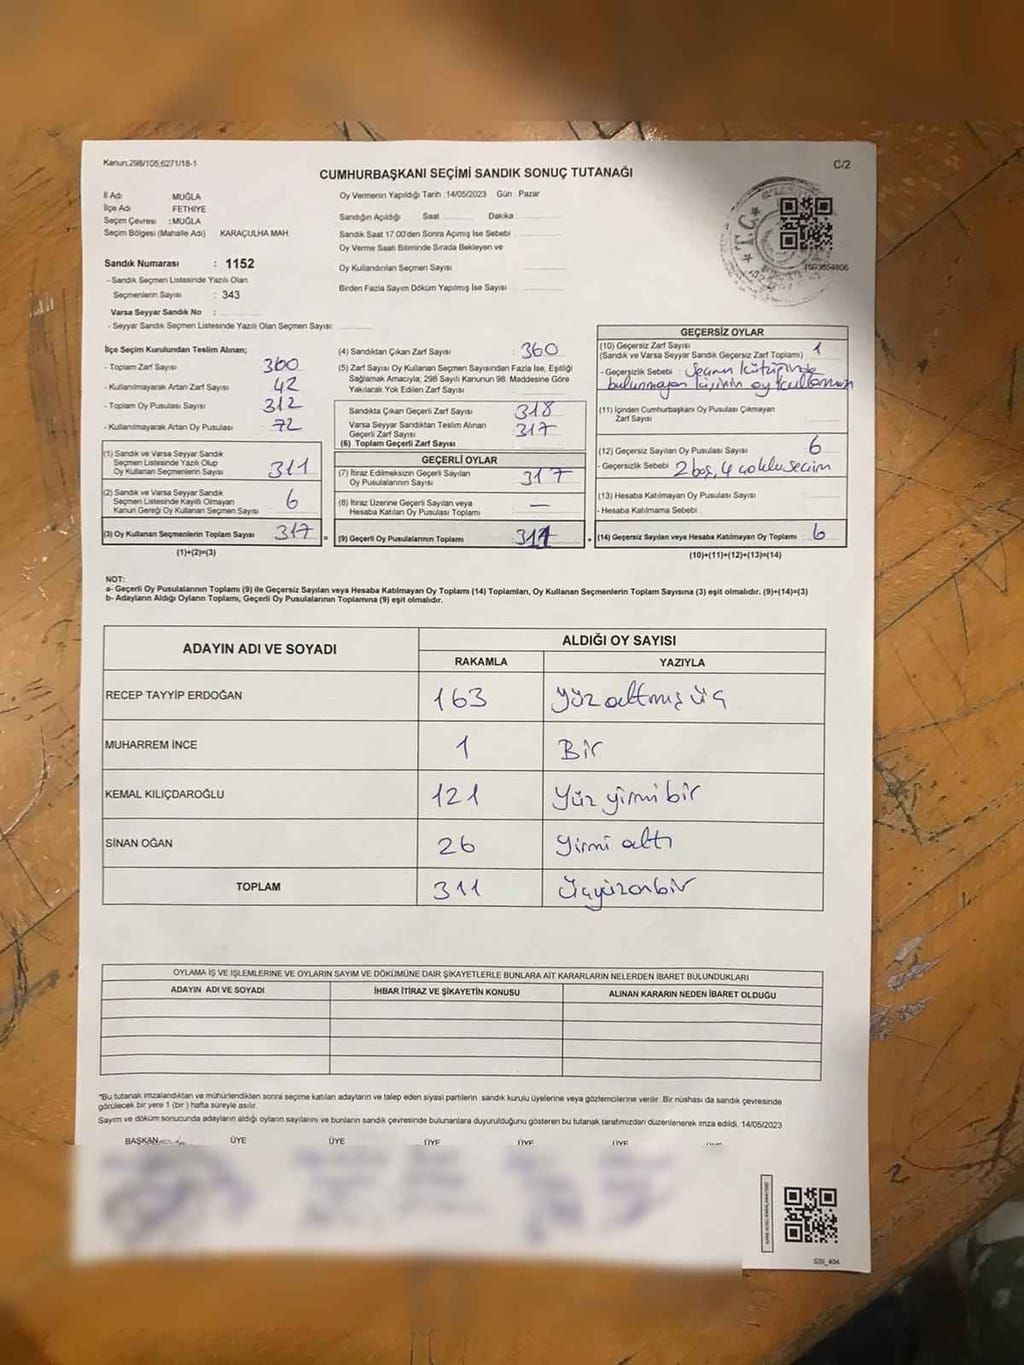 Kanun;298/105,6271/18-1
C/2
CUMHURBAŞKANI SEÇİMİ SANDIK SONUÇ TUTANAĞI
İl Adı MUĞLA
İlçe Adı FETHİYE
Seçim Çevresi : MUĞLA
Seçim Bölgesi (Mahalle Adı) KARAÇULHA MAH.
Sandık Numarası : 1152
- Sandık Seçmen Listesinde Yazılı Olan
Seçmenlerin Sayısı : 343
Varsa Seyyar Sandık No :
- Seyyar Sandık Seçmen Listesinde Yazılı Olan Seçmen Sayısı:
Oy Vermenin Yapıldığı Tarih :14/05/2023 Gün : Pazar
Sandığın Açıldığı Saat Dakika
Sandık Saat 17:00'den Sonra Açımış İse Sebebi
Oy Verme Saati Bitiminde Sırada Bekleyen ve
Oy Kullandırılan Seçmen Sayısı
Birden Fazla Sayım Döküm Yapılmış İse Sayısı
İlçe Seçim Kurulundan Teslim Alınan;
- Toplam Zarf Sayısı 360
- Kullanılmayarak Artan Zarf Sayısı 42
- Toplam Oy Pusulası Sayısı 312
- Kullanılmayarak Artan Oy Pusulası 72
(1) Sandık ve Varsa Seyyar Sandık
Seçmen Listesinde Yazılı Olup
Oy Kullanan Seçmenlerin Sayısı 311
(2) Sandık ve Varsa Seyyar Sandık
Seçmen Listesinde Kayıtlı Olmayan
Kanun Gereği Oy Kullanan Seçmen Sayısı 6
(3) Oy Kullanan Seçmenlerin Toplam Sayısı 317
(1)+(2)=(3)
(4) Sandıktan Çıkan Zarf Sayısı : 360
(5) Zarf Sayısı Oy Kullanan Seçmen Sayısından Fazla İse, Eşitliği
Sağlamak Amacıyla; 298 Sayılı Kanunun 98. Maddesine Göre
Yakılarak Yok Edilen Zarf Sayısı
Sandıkta Çıkan Geçerli Zarf Sayısı 318
Varsa Seyyar Sandıktan Teslim Alınan
Geçerli Zarf Sayısı 317
(6) Toplam Geçerli Zarf Sayısı
GEÇERLİ OYLAR
(7) İtiraz Edilmeksizin Geçerli Sayılan
Oy Pusulalarının Sayısı 317
(8) İtiraz Üzerine Geçerli Sayılan veya
Hesaba Katılan Oy Pusulası Toplamı —
= (9) Geçerli Oy Pusulalarının Toplamı 311
GEÇERSİZ OYLAR
(10) Geçersiz Zarf Sayısı
(Sandık ve Varsa Seyyar Sandık Geçersiz Zarf Toplamı) 1
- Geçersizlik Sebebi : Seçmen kütüğünde
bulunmayan kişinin oy kullanması
(11) İçinden Cumhurbaşkanı Oy Pusulası Çıkmayan
Zarf Sayısı
(12) Geçersiz Sayılan Oy Pusulası Sayısı 6
- Geçersizlik Sebebi : 2 boş, 4 çoklu seçim
(13) Hesaba Katılmayan Oy Pusulası Sayısı
- Hesaba Katılmama Sebebi :
+ (14) Geçersiz Sayılan veya Hesaba Katılmayan Oy Toplamı : 6
(10)+(11)+(12)+(13)=(14)
NOT:
a- Geçerli Oy Pusulalarının Toplamı (9) ile Geçersiz Sayılan veya Hesaba Katılmayan Oy Toplamı (14) Toplamları, Oy Kullanan Seçmenlerin Toplam Sayısına (3) eşit olmalıdır. (9)+(14)=(3)
b- Adayların Aldığı Oyların Toplamı, Geçerli Oy Pusulalarının Toplamına (9) eşit olmalıdır.
ADAYIN ADI VE SOYADI ALDIĞI OY SAYISI
RAKAMLA YAZIYLA
RECEP TAYYİP ERDOĞAN 163 Yüz altmış üç
MUHARREM İNCE 1 Bir
KEMAL KILIÇDAROĞLU 121 Yüz yirmi bir
SİNAN OĞAN 26 Yirmi altı
TOPLAM 311 Üçyüzonbir
OYLAMA İŞ VE İŞLEMLERİNE VE OYLARIN SAYIM VE DÖKÜMÜNE DAİR ŞİKAYETLERLE BUNLARA AİT KARARLARIN NELERDEN İBARET BULUNDUKLARI
ADAYIN ADI VE SOYADI İHBAR İTİRAZ VE ŞİKAYETİN KONUSU ALINAN KARARIN NEDEN İBARET OLDUĞU
*Bu tutanak imzalandıktan ve mühürlendikten sonra seçime katılan adayların ve talep eden siyasi partilerin sandık kurulu üyelerine veya gözlemcilerine verilir. Bir nüshası da sandık çevresinde
görülecek bir yere 1 (bir) hafta süreyle asılır.
Sayım ve döküm sonucunda adayların aldığı oyların sayılarını ve bunların sandık çevresinde bulunanlara duyurulduğunu gösteren bu tutanak tarafımızdan düzenlenerek imza edildi. 14/05/2023
BAŞKAN ÜYE ÜYE ÜYE ÜYE ÜYE